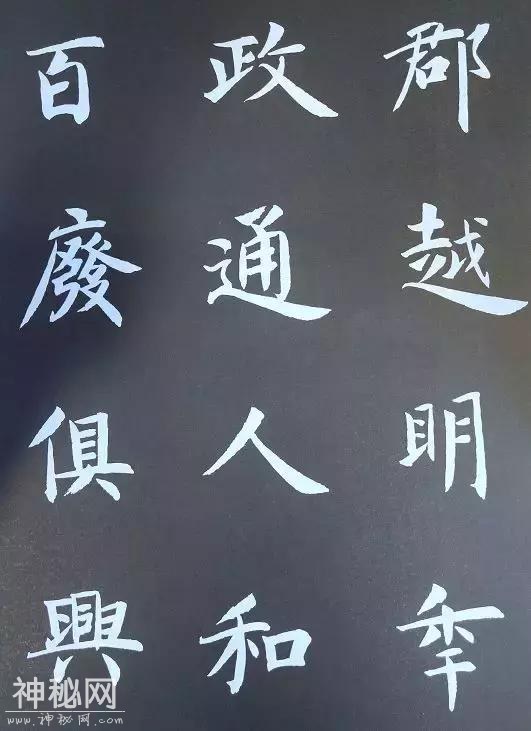 郡越明秊
政通人和
百廢俱興
神秘网
www.神秘网.com